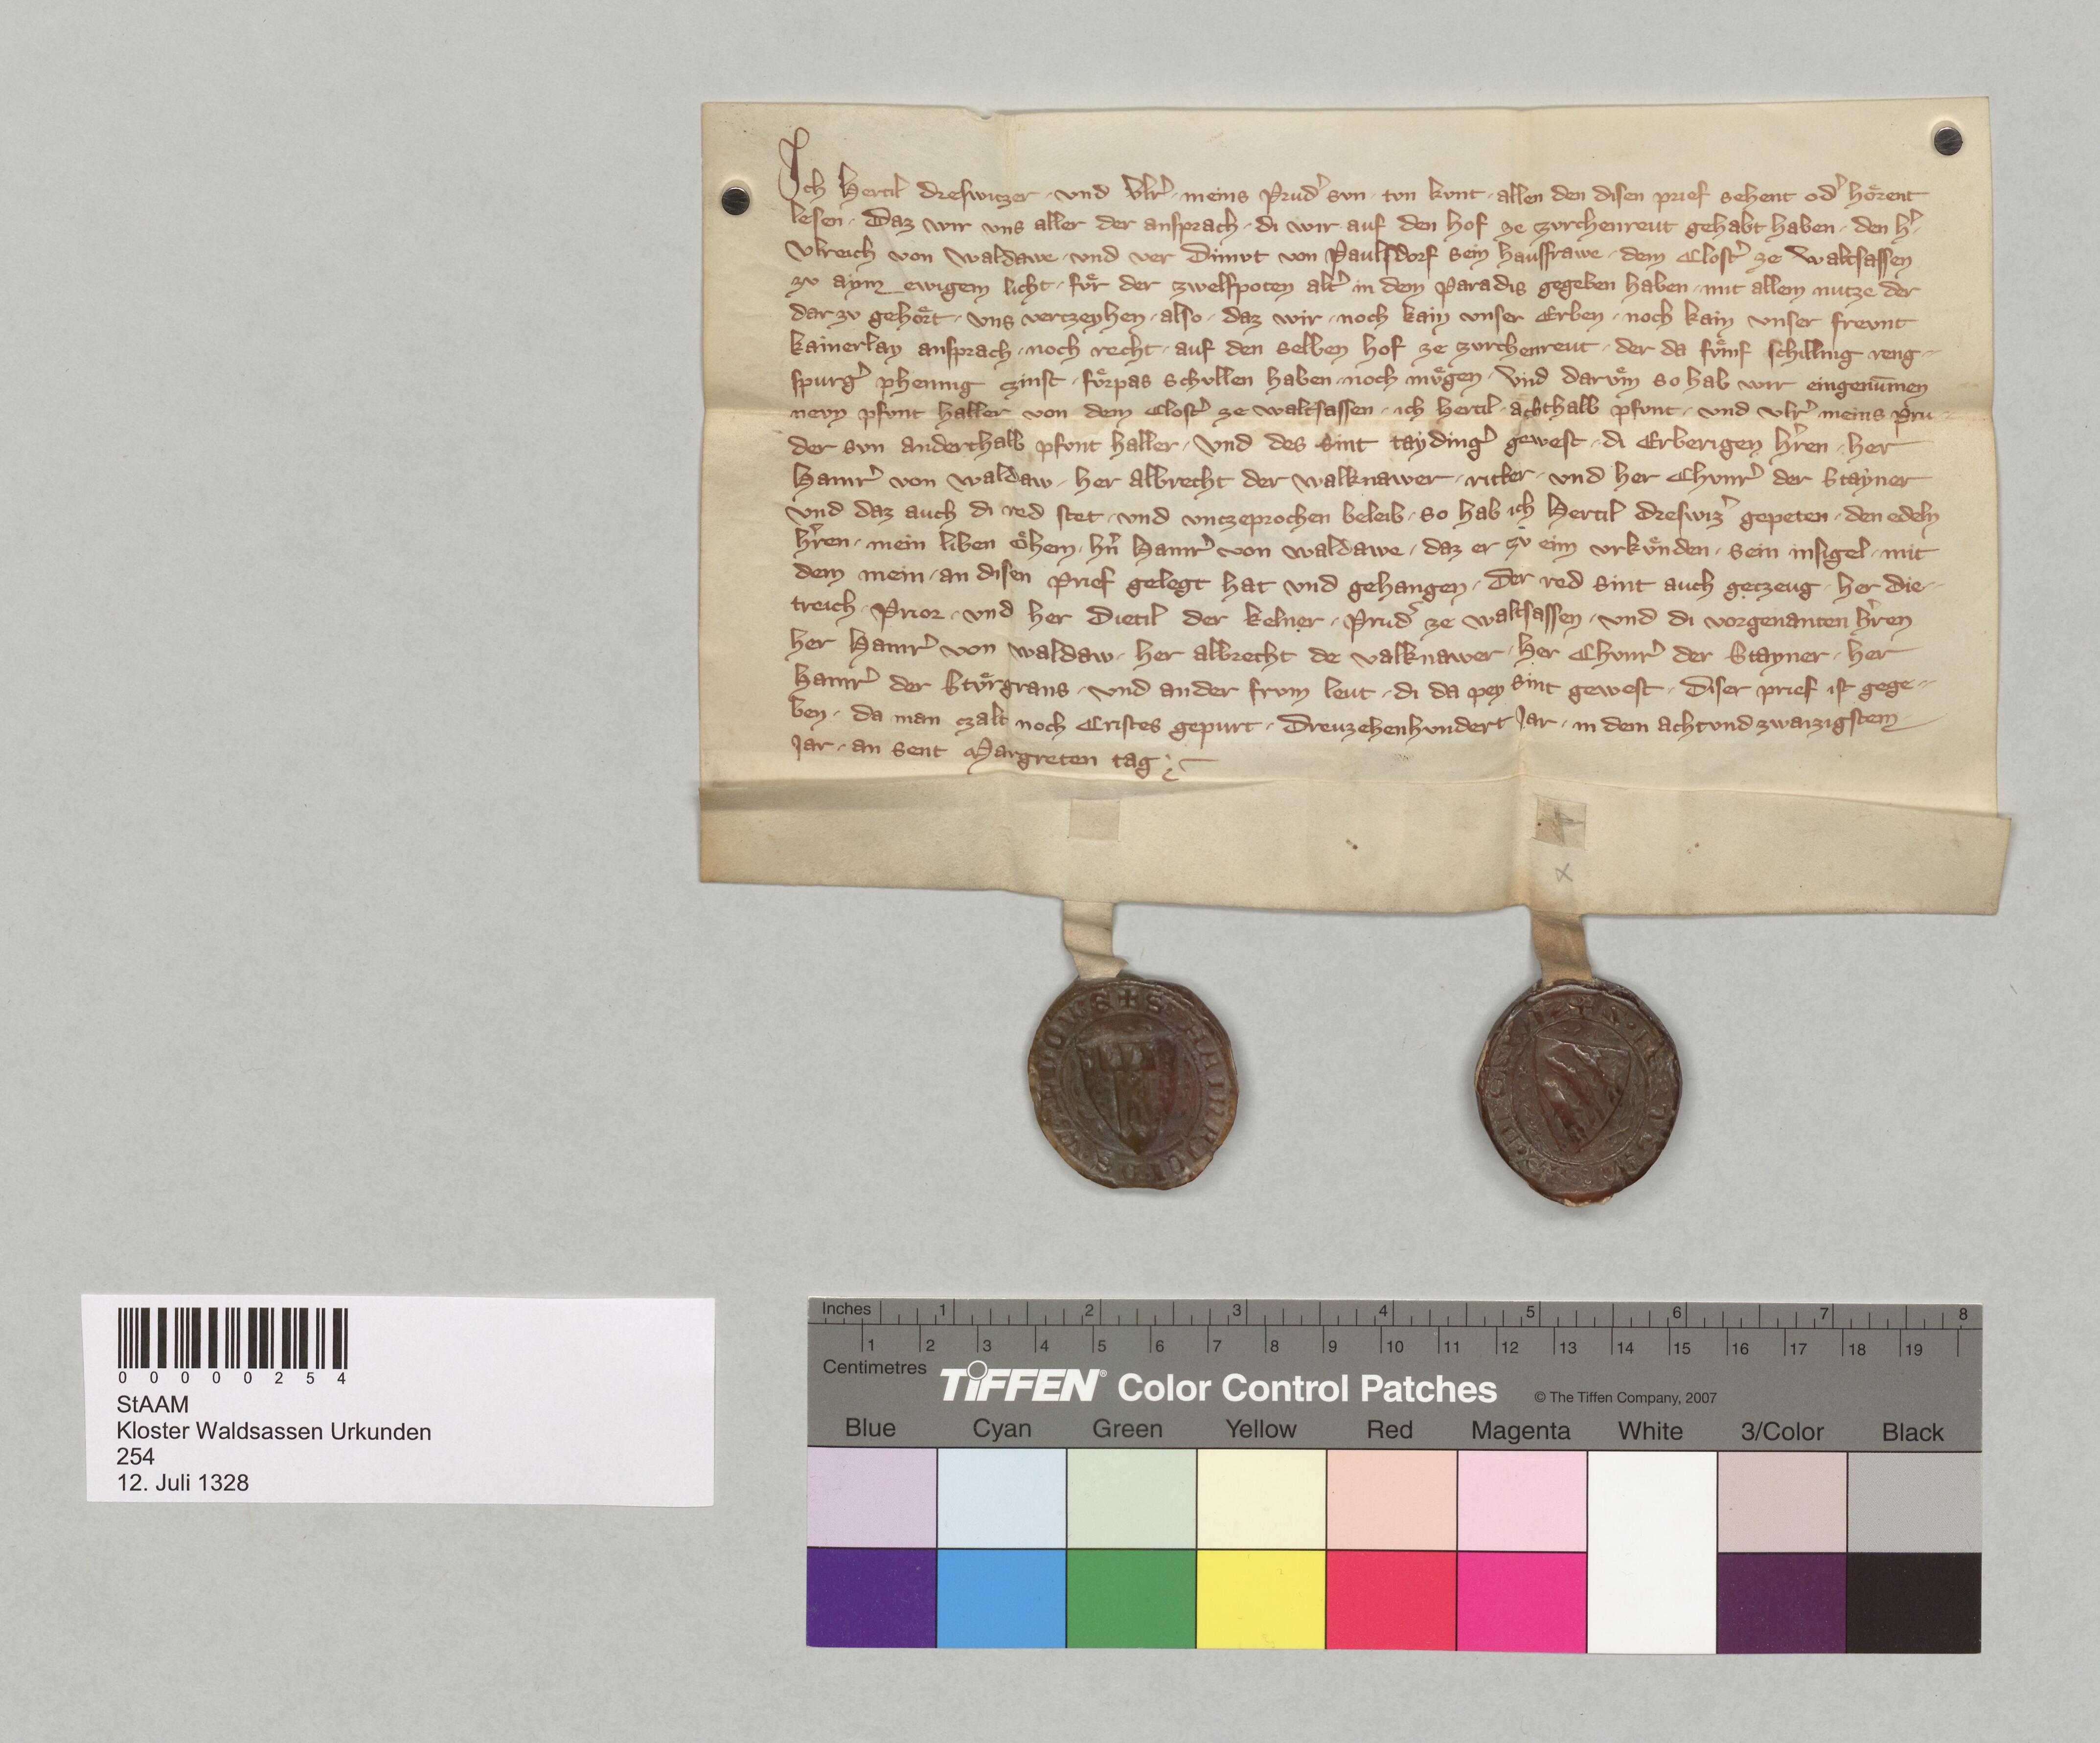 Ich Hertil dreswitzer · vnd Vlr᷑ · meins Prud᷑ svn · tvn kvnt · allen den disen prief sehent od᷑ hoͤrent
lesen · Daz wir vns aller der ansprach · di wir auf den hof ze zvrchenreut gehabt haben · den h᷑
Vlreich von Waldawe · vnd ver Dimvt von Paulsdorf sein hausfrawe · dem Clost᷑ ze Waltsassen
zv aym ewigem licht · fuͤr der zwelfpoten alt᷑ in dem Paradis gegeben haben · mit allem nutze der
dar zv gehoͤrt · vns vertzeyhen · also · daz wir · noch kain vnser Erben · noch kain vnser frevnt
kainerlay ansprach · noch recht · auf den selben hof ze zvrchenreut · der da fvͤmf schilling reng-
spurg᷑ phennig zinst · fvͤrpas schvllen haben · noch mvͤgen · Vnd darvͤm so hab wir eingenūmen
nevn pfvnt haller von dem Clost᷑ ze waltsassen · ich hertil · achthalb pfvnt · vnd vlr᷑ meins Pru-
der svn anderthalb pfvnt haller · Vnd des sint tayding᷑ gewest · di Erberigen hr᷑en · her
Hainr᷑ von waldaw · her Albrecht der walknawer · ritter · vnd her Chvnr᷑ der Stayner
vnd daz auch di red stet · vnd vntzeprochen beleib · so hab ich Hertil dreswiz᷑ gepeten · den edeln
hr᷑en · mein liben oͤhem · hn᷑ Hainr᷑ von waldawe · daz er zv eim vrkvͤnden · sein insigel · mit
dem mein · an disen Prief gelegt hat vnd gehangen · Der red sint auch getzeug · her die-
treich · Prior · vnd her Dietil der kelner · Prud᷑ ze waltsassen · vnd di vorgenanten hr᷑en
her Hainr᷑ von waldaw · her albrecht de valknawer · her Chvnr᷑ der Stayner · her
Hainr᷑ der Stvͤrgrans · vnd ander frvm leut · di da pey sint gewest · Diser prief ist gege-
ben · da man czalt noch Cristes gepurt · Dreuzehenhvndert Jar · in dem achtvnd zwaizigstem
Jar · an sent Margreten tag
0 0 0 0 0 2 5 4
StAAM
Kloster Waldsassen Urkunden
254
12. Juli 1328
Inches 1 2 3 4 5 6 7 8
1 2 3 4 5 6 7 8 9 10 11 12 13 14 15 16 17 18 19
Centimetres
TIFFEN® Color Control Patches © The Tiffen Company, 2007
Blue Cyan Green Yellow Red Magenta White 3/Color Black